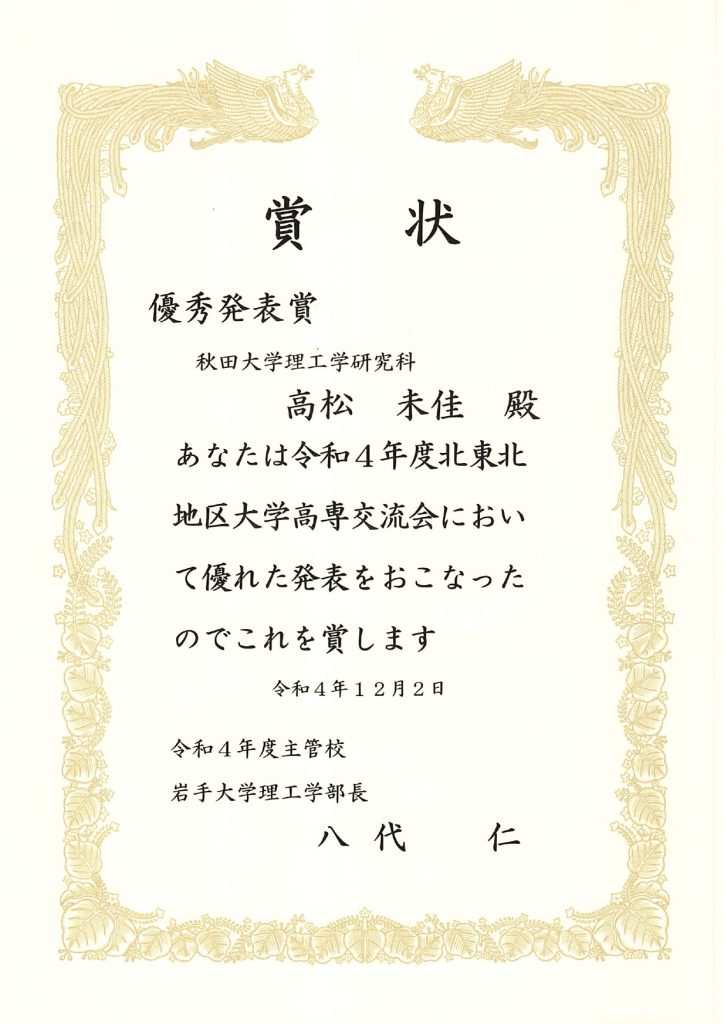 賞 状
優秀発表賞
秋田大学理工学研究科
高松 未佳 殿
あなたは令和４年度北東北
地区大学高専交流会におい
て優れた発表をおこなった
のでこれを賞します
令和４年１２月２日
令和４年度主管校
岩手大学理工学部長
八代 仁